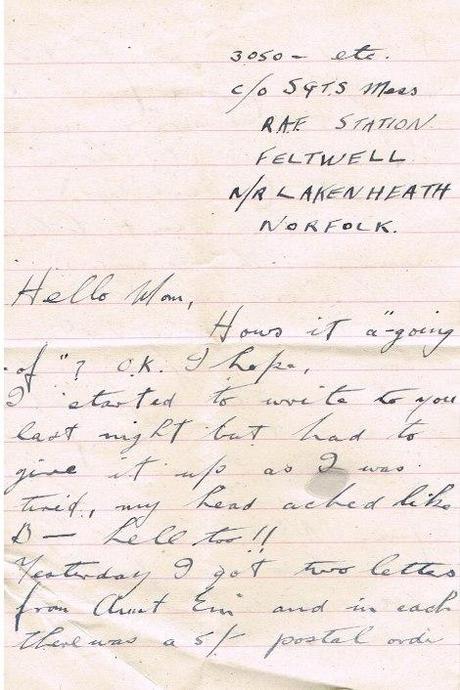 3050 - etc.
c/o SGTS Mess
RAF STATION
FELTWELL
N/R LAKENHEATH
NORFOLK.
Hello Mom,
Hows it a"-going
-of"? O.K. I hope,
I started to write to you
last night but had to
give it up as I was
tired, my head ached like
B— hell too!!
Yesterday I got two letters
from Aunt Em and in each
there was a 5/- postal order